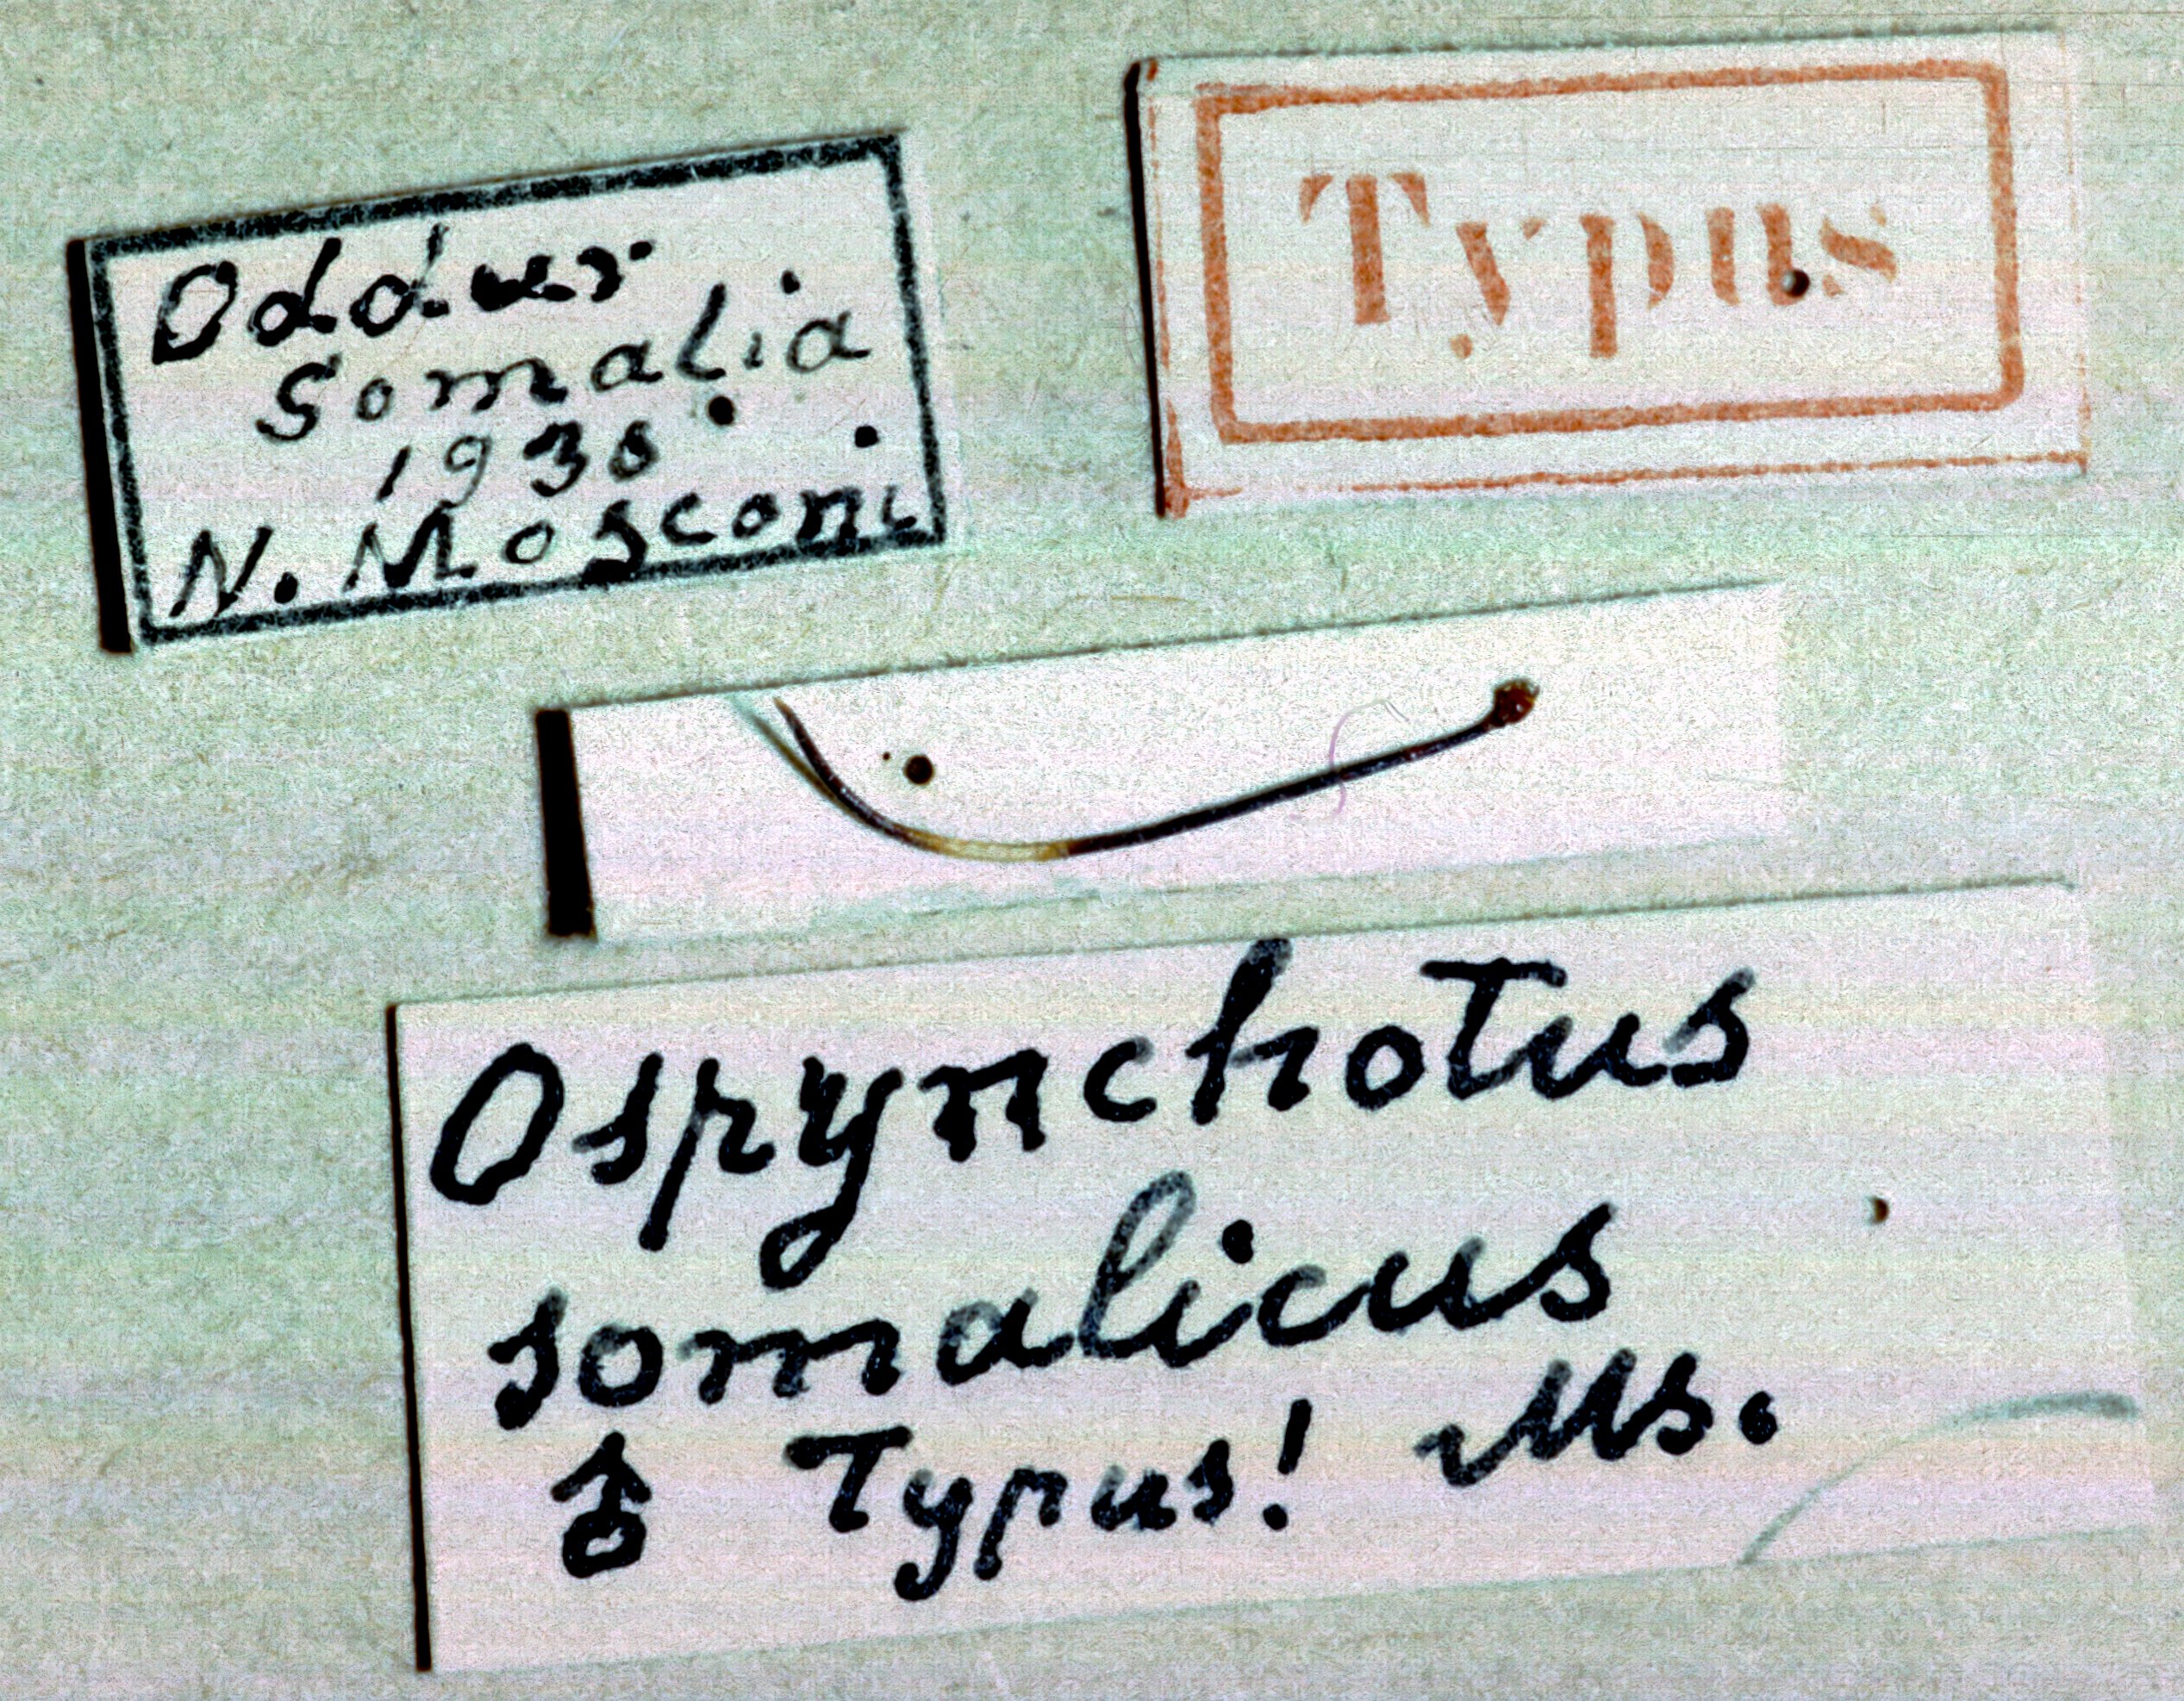 Oddur
Somalia
1930
N. Mosconi
Typus
Ospynchotus
somalicus
♂ Typus! Ms.